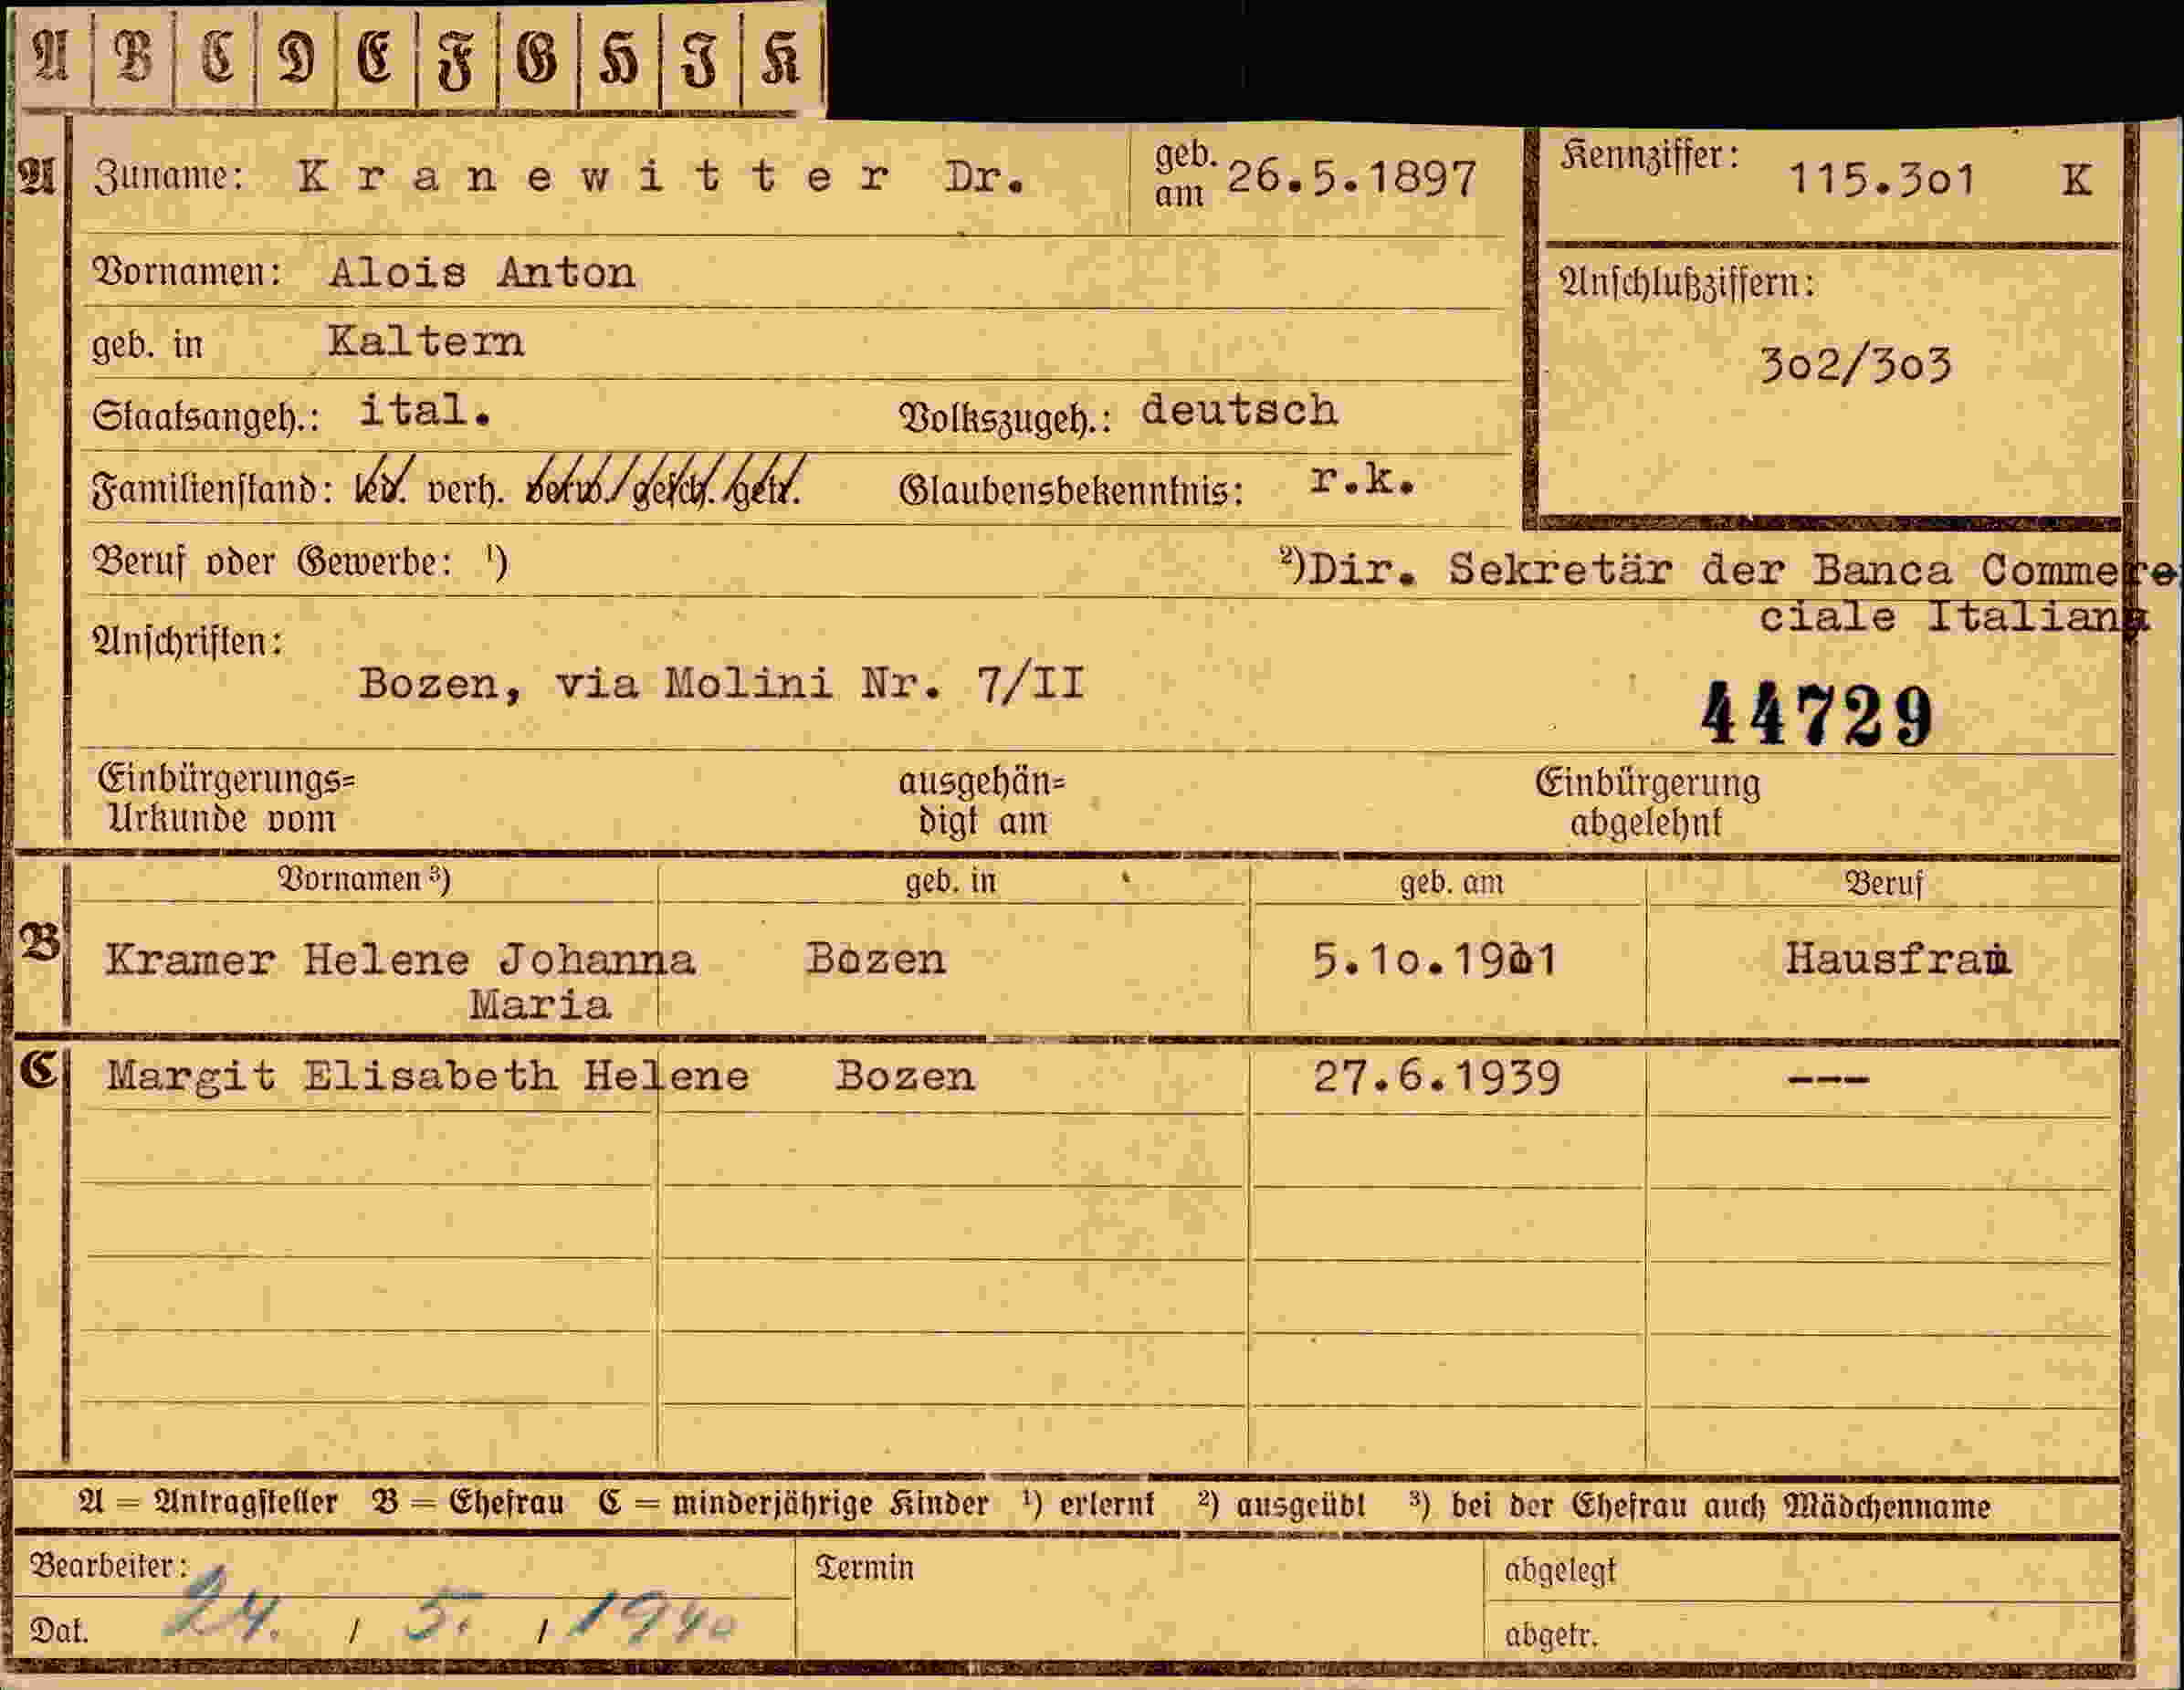 A B C D E F G H J K
A Zuname: Kranewitter Dr. geb. am 26.5.1897 Kennziffer: 115.3o1 K
Vornamen: Alois Anton
Anschlußziffern:
geb. in Kaltern
3o2/3o3
Staatsangeh.: ital. Volkszugeh.: deutsch
Familienstand: led. verh. verw. gesch. getr. Glaubensbekenntnis: r.k.
Beruf oder Gewerbe: ¹) ²)Dir. Sekretär der Banca Commere
ciale Italiana
Anschriften:
Bozen, via Molini Nr. 7/II
44729
Einbürgerungs= ausgehän= Einbürgerung
Urkunde vom digt am abgelehnt
Vornamen ³) geb. in geb. am Beruf
B Kramer Helene Johanna Bozen 5.1o.1901 Hausfrau
Maria
C Margit Elisabeth Helene Bozen 27.6.1939 ---
A = Antragsteller B = Ehefrau C = minderjährige Kinder ¹) erlernt ²) ausgeübt ³) bei der Ehefrau auch Mädchenname
Bearbeiter: Termin abgelegt
Dat. 24. / 5. / 1940 abgetr.